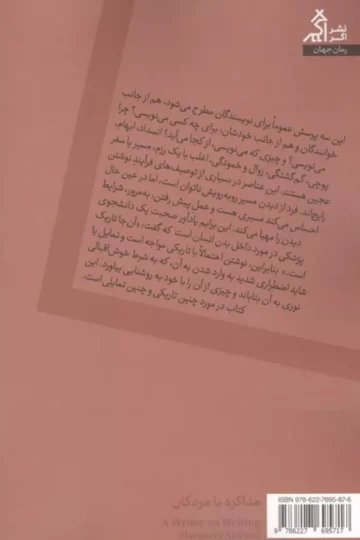 نشر اگر
رمان جهان
این سه پرسش عموماً برای نویسندگان مطرح می‌شود، هم از جانب
خوانندگان و هم از جانب خودشان: برای چه کسی می‌نویسی؟ چرا
می‌نویسی؟ و چیزی که می‌نویسی، از کجا می‌آید؟ انسداد، ابهام،
پوچی، گم‌گشتگی، زوال و خمودگی، اغلب با یک رزم، مسیر یا سفر
عجین هستند. این عناصر در بسیاری از توصیف‌های فرآیند نوشتن
رایج‌اند. فرد از دیدن مسیر روبه‌رویش ناتوان است، اما در عین حال
احساس می‌کند مسیری هست و عمل پیش رفتن، به‌مرور، شرایط
دیدن را مهیا می‌کند. این برایم یادآور صحبت یک دانشجوی
پزشکی در مورد داخل بدن انسان است که گفت، «آن‌جا تاریک
است.» بنابراین، نوشتن احتمالاً با تاریکی مواجه است و تمایل یا
شاید اضطراری شدید به وارد شدن به آن، که به شرط خوش‌اقبالی
نوری به آن بتاباند و چیزی از آن را با خود به روشنایی بیاورد. این
کتاب در مورد چنین تاریکی و چنین تمایلی است.
مذاکره با مردگان
A Writer on Writing
Margaret Atwood
ISBN 978-622-7695-87-6
9 786227 695717